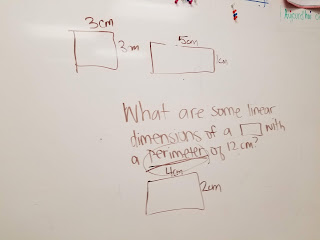 3cm
3cm
5cm
1cm
What are some linear
dimensions of a with
a perimeter of 12 cm?
4cm
2cm